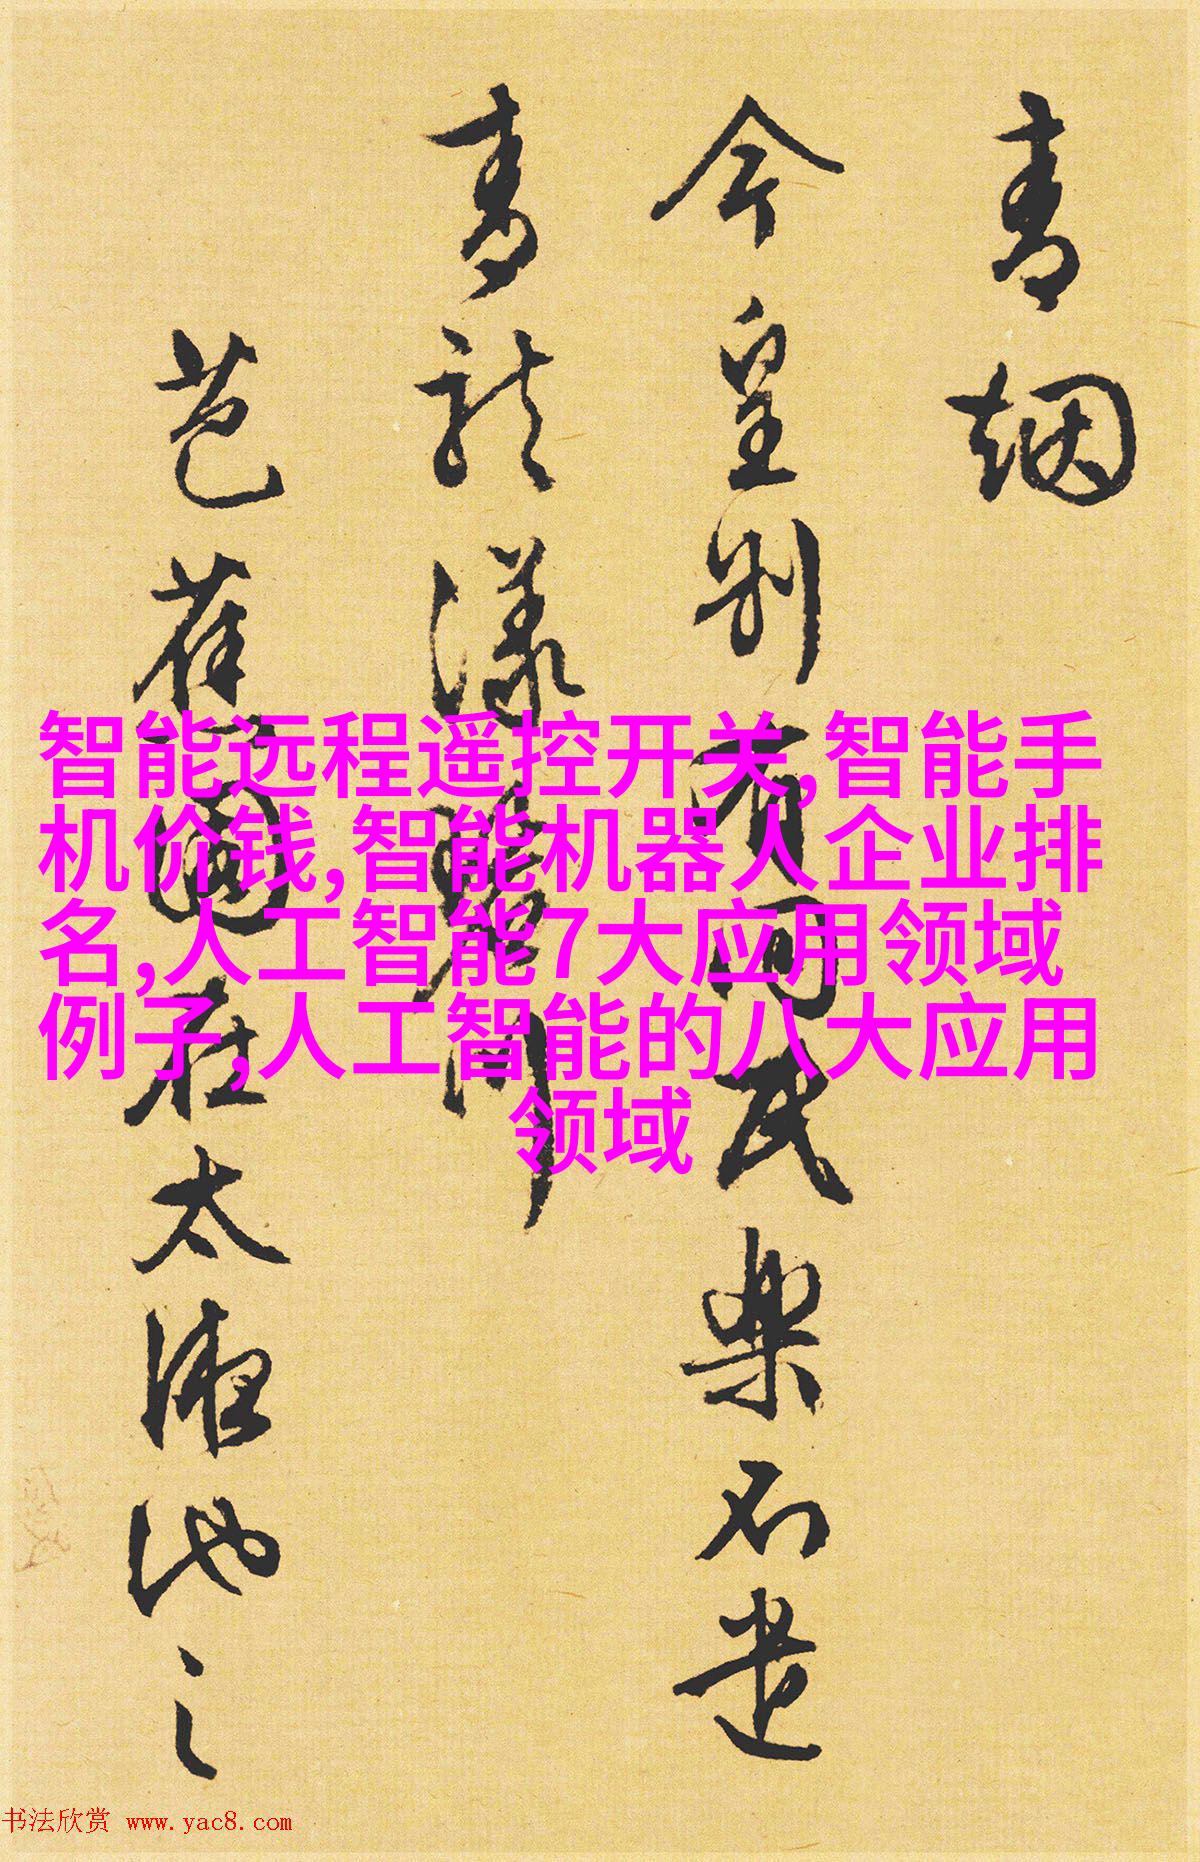 青烟
今皇别有同民樂不遣
青龍漾碧川
芭蕉園在太液池之
智能远程遥控开关,智能手
机价钱,智能机器人企业排
名,人工智能7大应用领域
例子,人工智能的八大应用
领域
书法欣赏 www.yac8.com